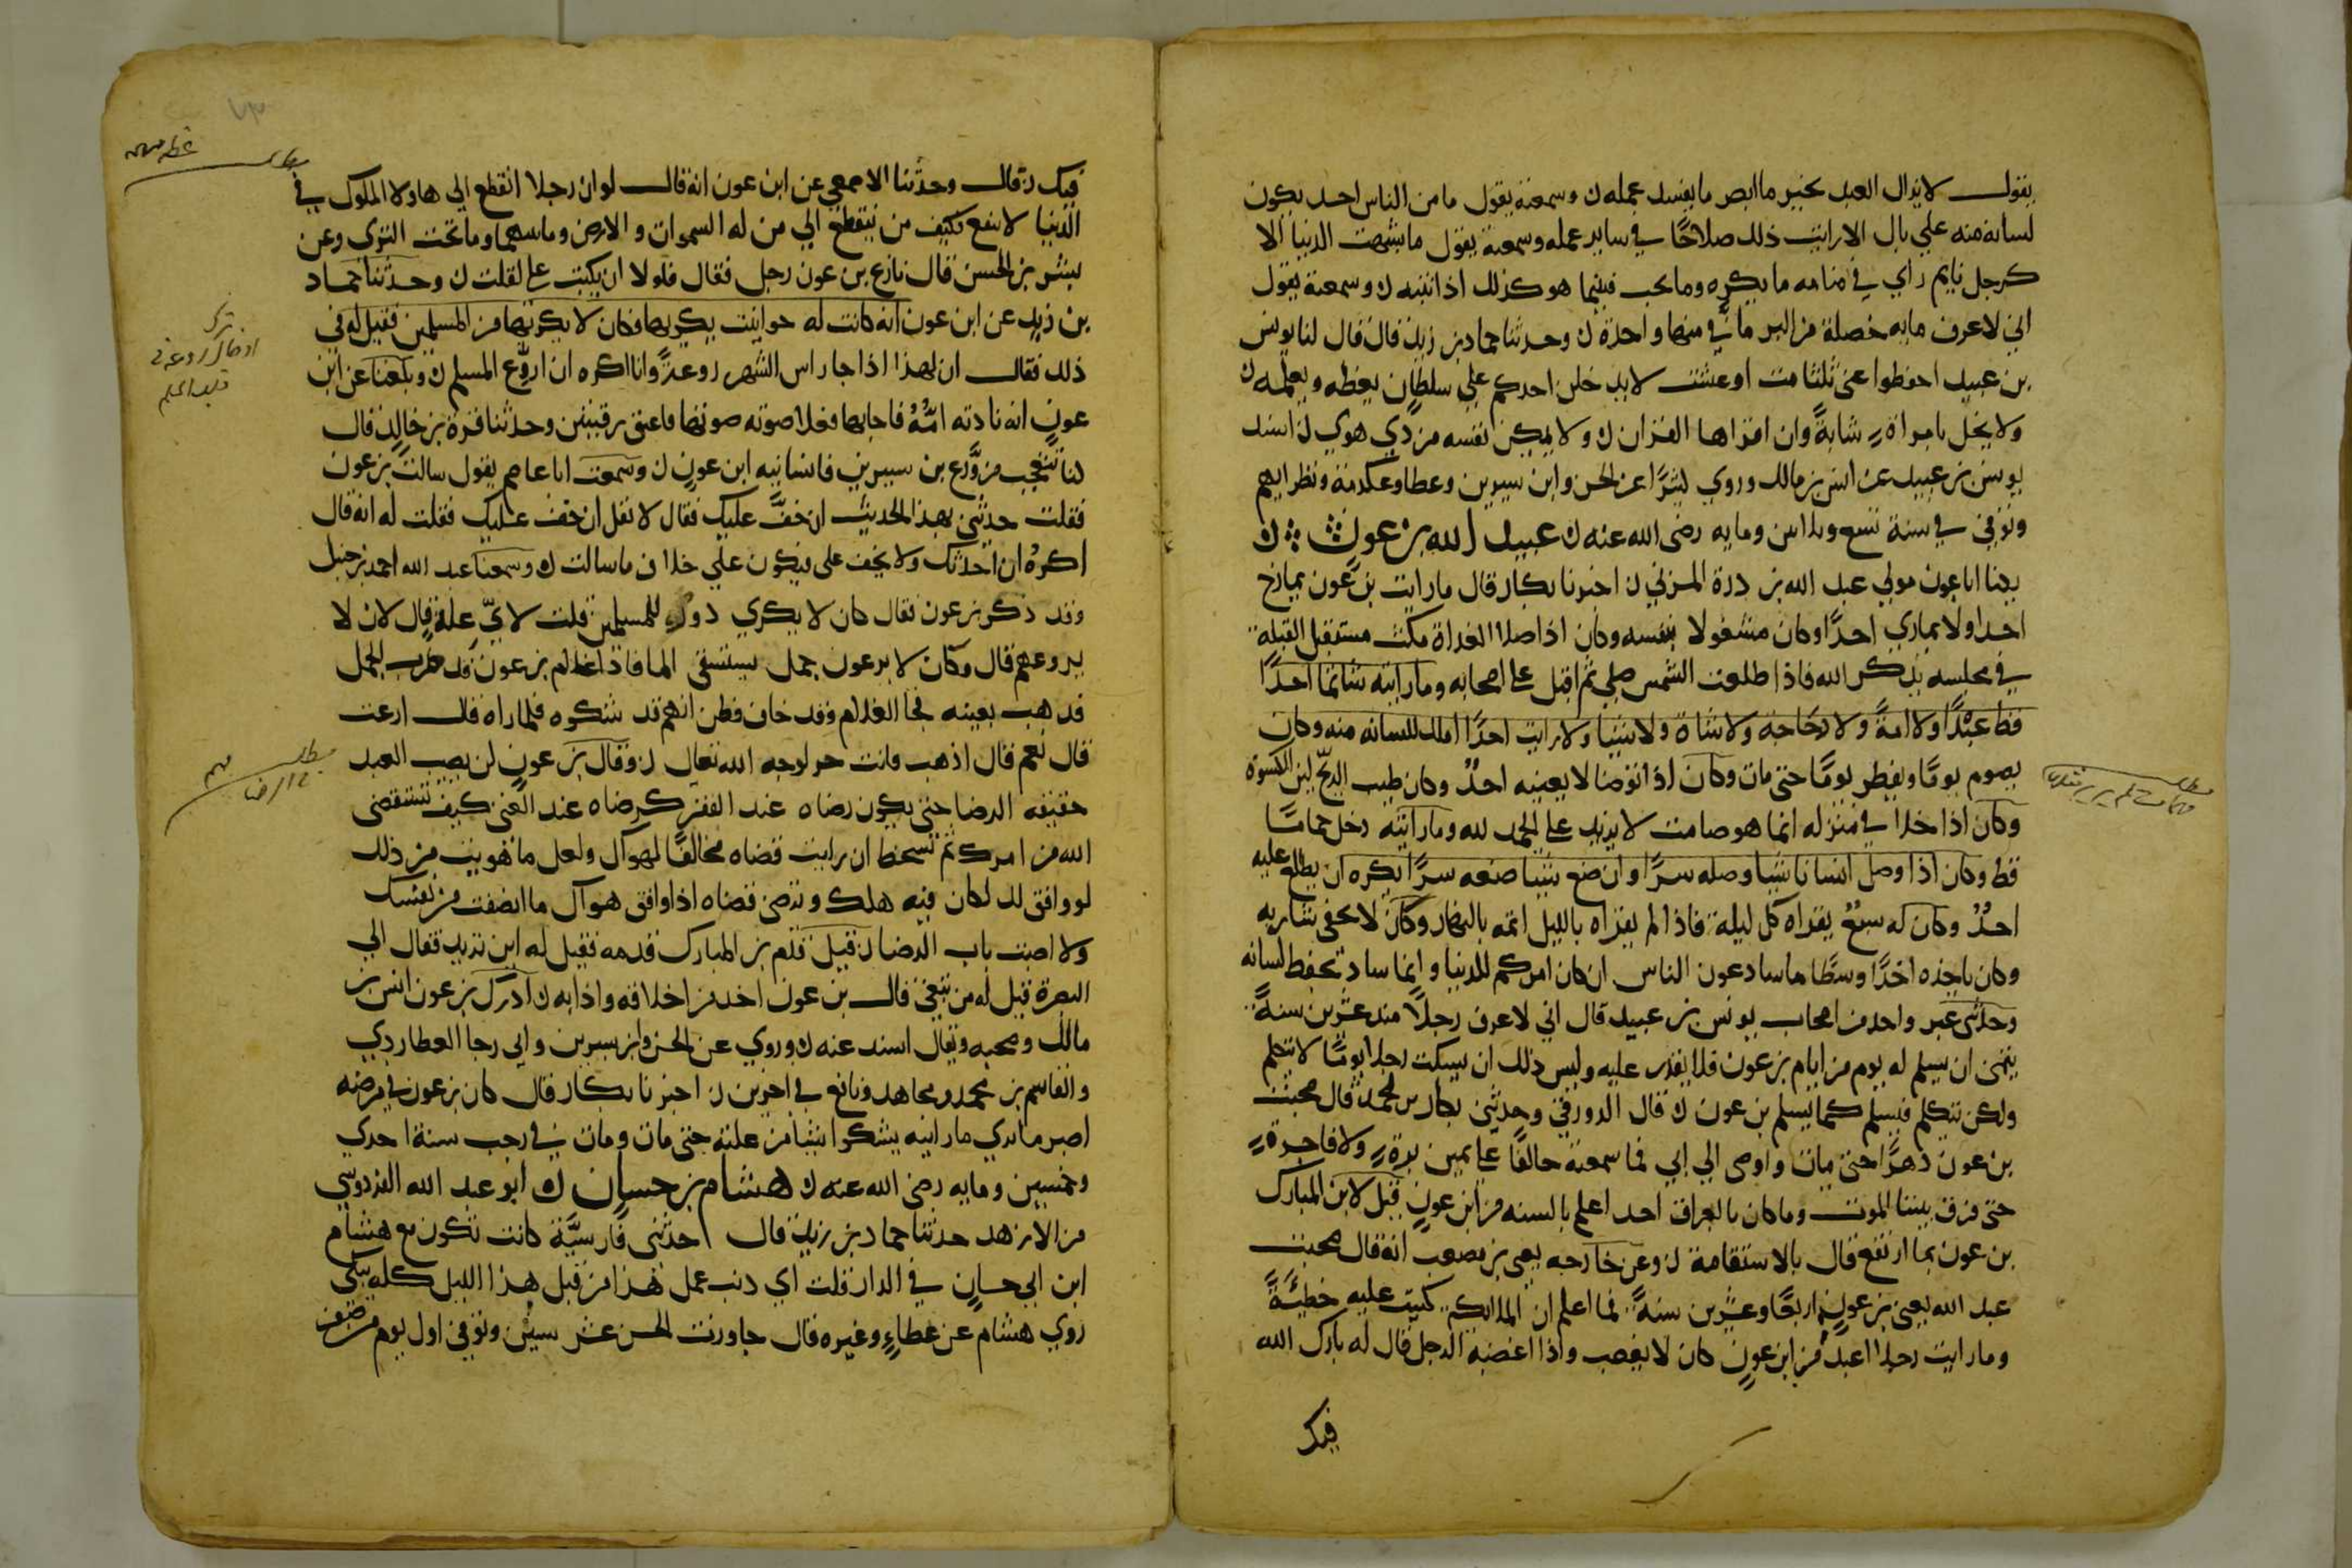 يقول لا يزال العبد بخير ما ابصر ما يفسد عمله ن وسمعته يقول ما من الناس احد يكون
لسانه منه علي بال الا رايت ذلك صلاحًا في ساير عمله وسمعته يقول ما شبهت الدنيا الا
كرجل نايم راي في منامه ما يكره وما يحب فبينما هو كذلك اذ انتبه ن وسمعته يقول
اني لاعرف مايه خصلة من البر ما في منها واحدة ن وحدثنا حماد بن زيد قال قال لنا يونس
بن عبيد احفظوا عني ثلثا مت او عشت لا يدخلن احدكم علي سلطان يعظه ويعلمه ن
ولا يخل بامراةٍ شابةً وان اقراها القران ن ولا يمكن نفسه من ذي هوي ن اسند
يونس بن عبيد عن انس بن مالك وروي عن الحسن وابن سيرين وعطا وعكرمة ونظرايهم
وتوفي في سنة تسع وثلاثين ومايه رضي الله عنه ن عبيد الله بن عونٍ ن
يكنا ابا عون مولي عبد الله بن درة المزني ن اخبرنا بكار قال ما رايت بن عون يمازح
احدا ولا يماري احدًا وكان مشغولا بنفسه وكان اذا صلا الغداة مكث مستقبل القبلة
في مجلسه يذكر الله فاذا طلعت الشمس صلي ثم اقبل علي اصحابه وما رايته شاتما احدًا
قط عبدًا ولا امةً ولا دجاجة ولا شاة ولا شيا ولا رايت احدًا املك للسانه منه وكان
يصوم يومًا ويفطر يومًا حتي مات وكان اذا توضا لا يعينه احدٌ وكان طيب الريح لين الكسوة
وكان اذا خلا في منزله انما هو صامت لا يزيد علي الحمد لله وما رايته دخل حماما
قط وكان اذا وصل انسانا شيا وصله سرًا وان صنع شيا صنعه سرًا يكره ان يطلع عليه
احدٌ وكان له سبعٌ يقراه كل ليلة فاذا لم يقراه بالليل اتمه بالنهار وكان لا يحفي شاربه
وكان ياخذه اخذًا وسطًا ما ساد بن عون الناس ان كان اتركهم للدنيا وانما ساد بحفظ لسانه
وحدثني غير واحد من اصحاب يونس بن عبيد قال اني لاعرف رجلًا منذ عشرين سنةً
يتمني ان يسلم له يوم من ايام بن عون فلا يقدر عليه وليس ذلك ان يسكت رجلا يومًا لا يتكلم
ولكن يتكلم فيسلم كما يسلم بن عون ن قال الدورقي وحدثني بكار بن محمد قال صحبت
بن عون دهرًا حتي مات واوصي الي ابي فما سمعته حالفًا علي يمين برةٍ ولا فاجرةٍ
حتي فرق بيننا الموت وما كان بالعراق احد اعلم بالسنه من ابن عونٍ قيل لابن المبارك
بن عون بما ارتفع قال بالاستقامة ن وعن خارجه يعني بن مصعب انه قال صحبت
عبد الله يعني بن عونٍ اربعًا وعشرين سنةً فما اعلم ان الملايكه كتبت عليه خطيئةً
وما رايت رجلا اعبد من ابن عونٍ كان لا يغضب واذا اغضبه الرجل قال له بارك الله
فيك
فيك ن قال وحدثنا الاصمعي عن ابن عون انه قال لو ان رجلا انقطع الي هاولا الملوك في
الدنيا لانتفع فكيف من ينقطع الي من له السموات والارض وما بينهما وما تحت الثري وعن
بشر بن الحسن قال نازع بن عون رجل فقال فلولا ان يكتب علي لقلت ن وحدثنا حماد
بن زيد عن ابن عون انه كانت له حوانيت يكريها فكان لا يكريها من المسلمين فقيل له في
ذلك فقال ان لهذا اذا جا راس الشهر روعةً وانا اكره ان اروّع المسلم ن وبلغنا عن ابن
عون انه نادته امّهُ فاجابها فعلا صوته صوتها فاعتق رقبتين وحدثنا قرة بن خالد قال
كنا نتعجب من ورع بن سيرين فانسانيه ابن عون ن وسمعت ابا عاصم يقول سالت بن عون
فقلت حدثني بهذا الحديث ان خفّ عليك فقال لا تقل ان خف عليك فقلت له انه قال
اكرهُ ان احدثك ولا يخف علي فيكون علي خلاف ما سالت ن وسمعنا عبد الله احمد بن حنبل
وقد ذكر بن عون فقال كان لا يكري دوره للمسلمين قلت لايّ علة قال لان لا
يروعهم قال وكان لابن عون جمل يستسقي الما فاذا غلام بن عون قد ضرب الجمل
فذهب بعينه فجا الغلام وقد خاف وظن انهم قد شكوه فلما راه قال ارعت
قال نعم قال اذهب فانت حر لوجه الله تعالي ن وقال بن عونٍ لن يصيب العبد
حقيقه الرضا حتي يكون رضاه عند الفقر كرضاه عند الغني كيف تستقضي
الله من امرك ثم تسخط ان رايت قضاه مخالفًا لهواك ولعل ما هويت من ذلك
لو وافق لك لكان فيه هلكك وترضي قضاه اذا وافق هواك ما انصفت من نفسك
ولا اصبت باب الرضا ن قيل قدم بن المبارك قدمه فقيل له اين تريد فقال الي
البصرة قيل له من بقي قال بن عون اخذ من اخلاقه وادابه ن ادرك بن عون انس بن
مالك وصحبه ويقال اسند عنه ن وروي عن الحسن وابن سيرين وابي رجا العطاردي
والقاسم بن محمد ومجاهد ونافع في اخرين ن اخبرنا بكار قال كان بن عون في مرضه
اصبر ما انت راي ما رايته يشكوا شيا من علته حتي مات ومات في رجب سنة احدي
وخمسين ومايه رضي الله عنه ن هشام بن حسان ن ابو عبد الله القردوسي
من الازد حدثنا حماد بن زيد قال حدثتني فارسيّة كانت تكون مع هشام
ابن ابي حسان في الدار قلت اي ذنب عمل هذا من قبل هذا الليل كله يبكي
روي هشام عن عطاءٍ وغيره قال جاورت الحسن عشر سنين وتوفي اول يوم من صفر